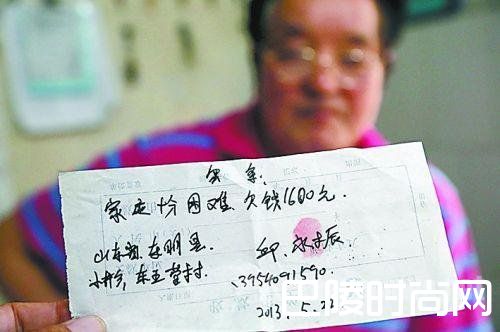 欠条:
家庭十分困难.欠钱1600元.
山东省,东明县
小井乡,东王营村.
13954091590.
2013.5.22
巴陵时尚网